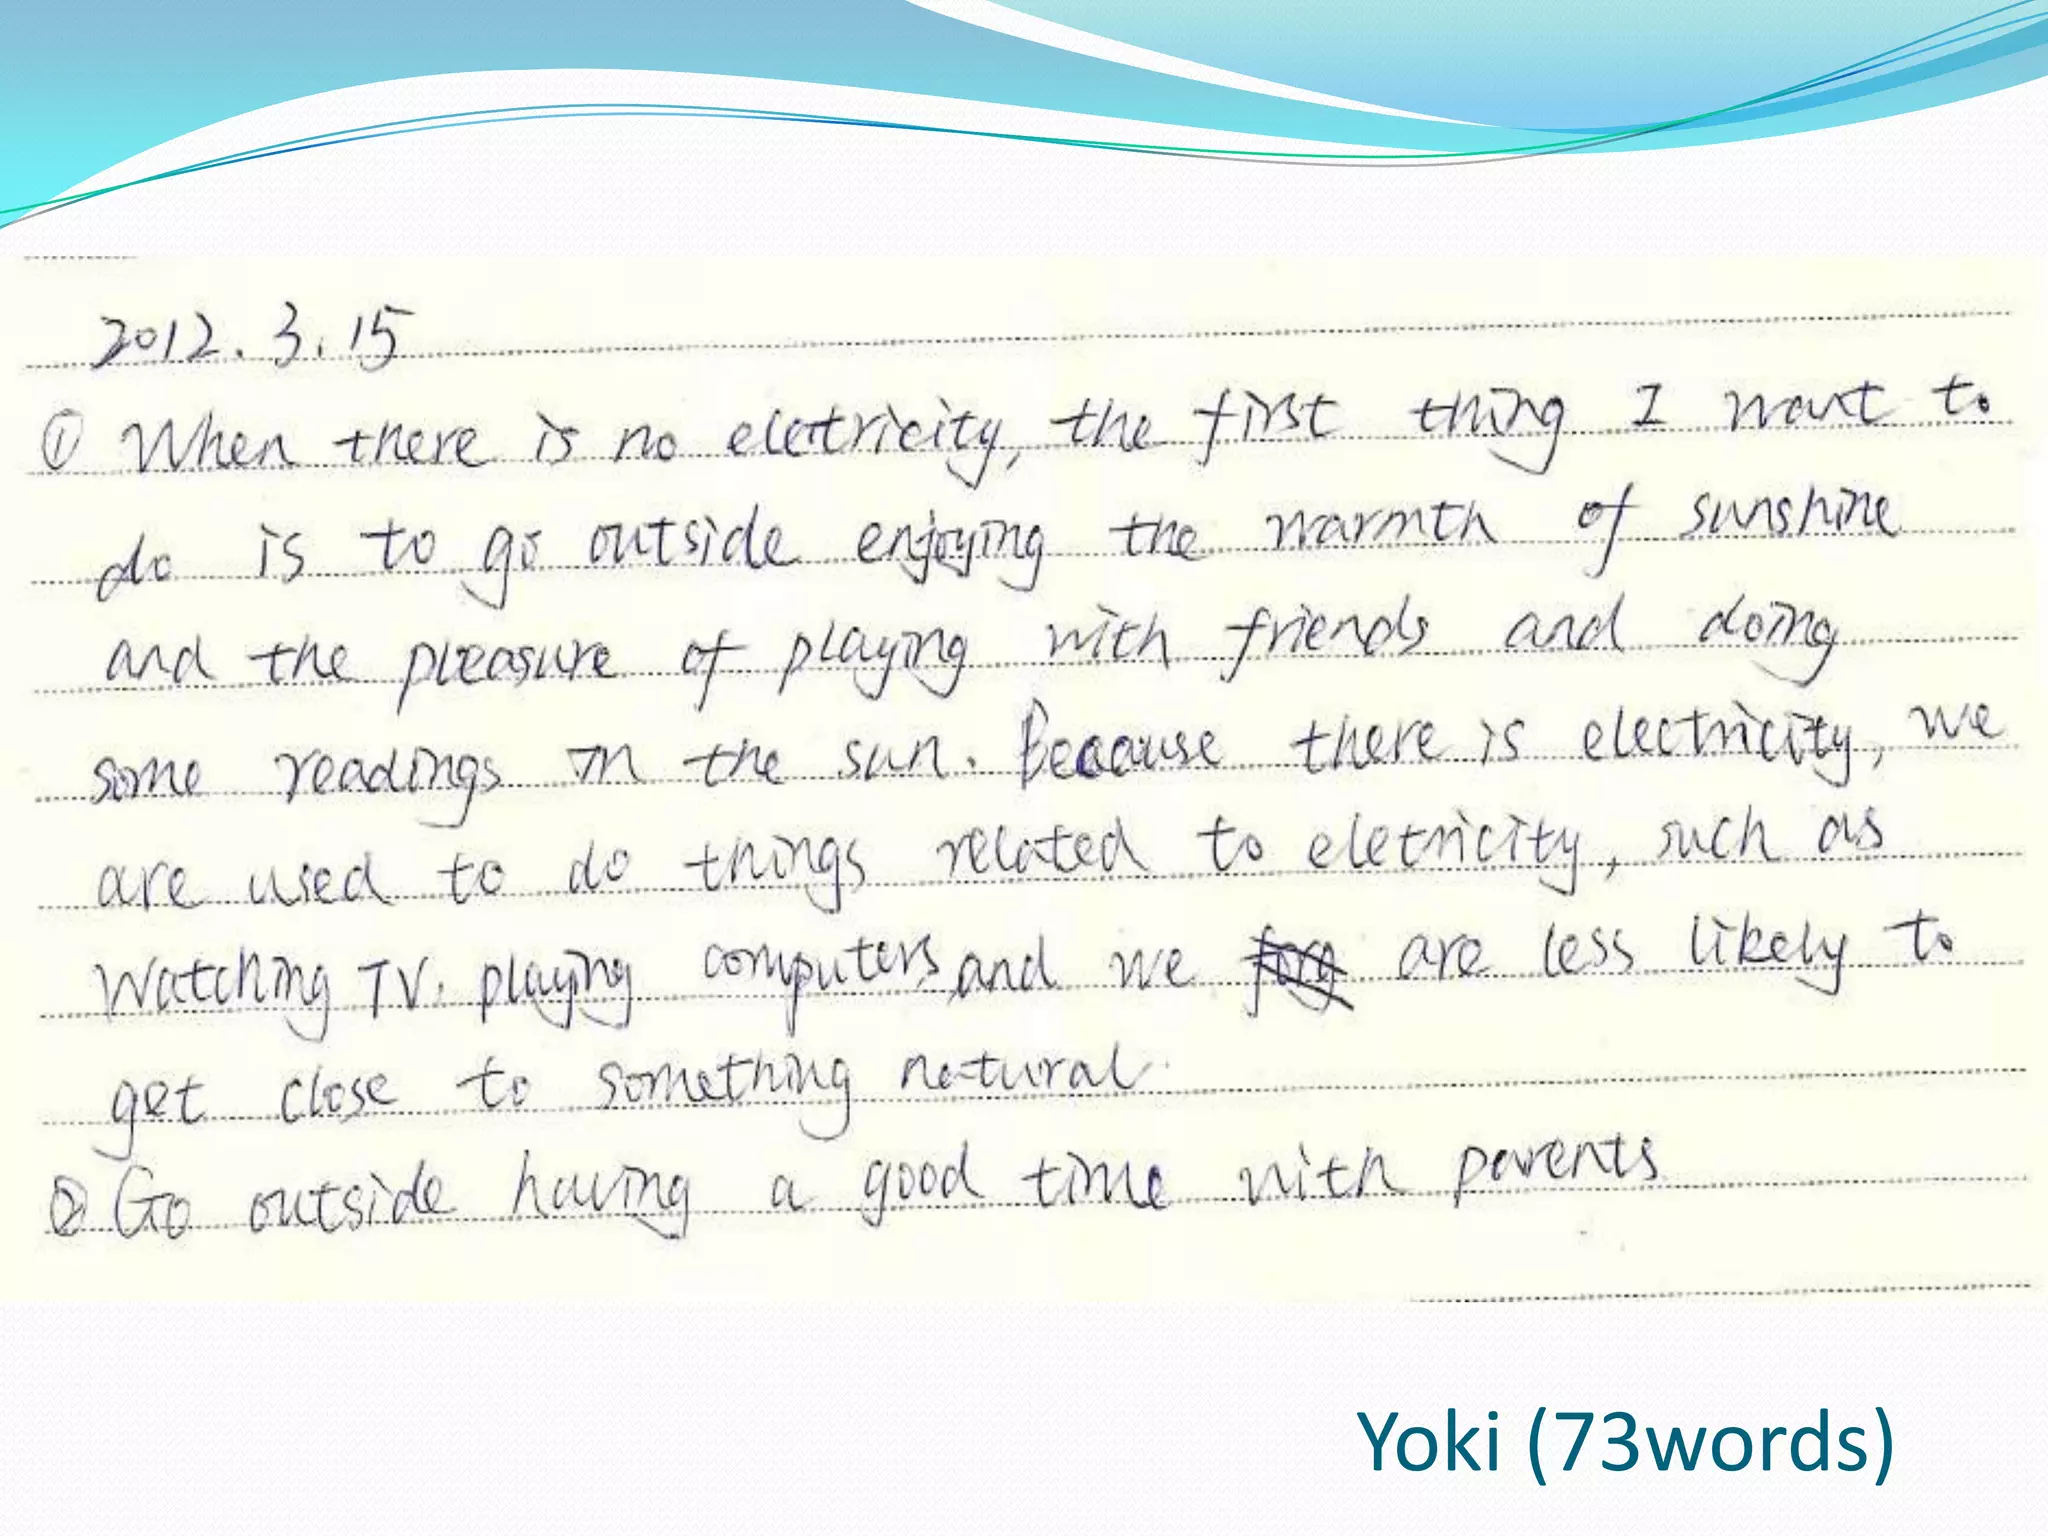 2012. 3. 15
① When there is no eletricity, the first thing I want to
do is to go outside enjoying the warmth of sunshine
and the pleasure of playing with friends and doing
some readings in the sun. Because there is electricity, we
are used to do things related to eletricity, such as
watching TV. playing computers, and we are less likely to
get close to something natural.
② Go outside having a good time with parents
Yoki (73words)